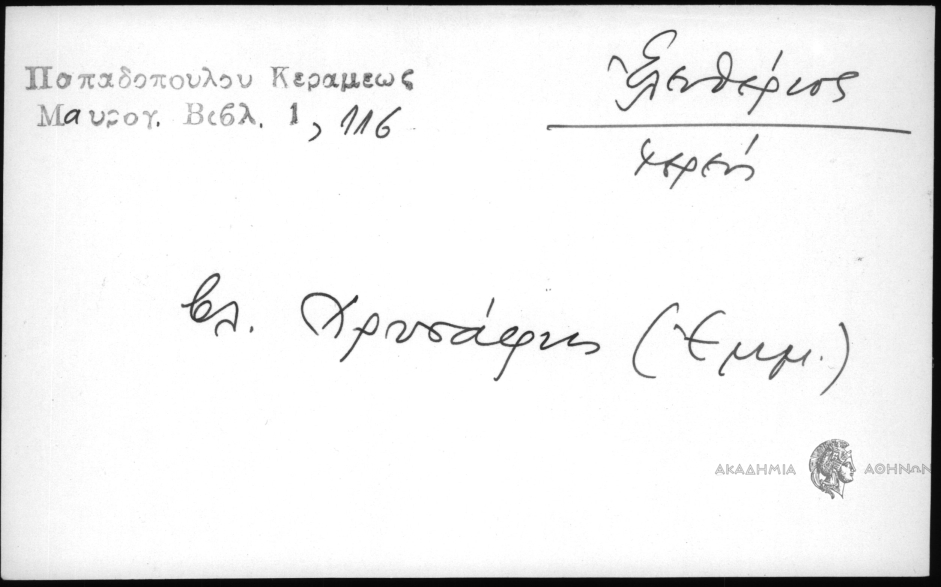 Παπαδοπουλου Κεραμεως
Μαυρογ. Βιβλ. 1, 116
Ἐλευθέριος
ἱερεύς
βλ. Χρυσάφης (Ἐμμ.)
ΑΚΑΔΗΜΙΑ ΑΘΗΝΩΝ